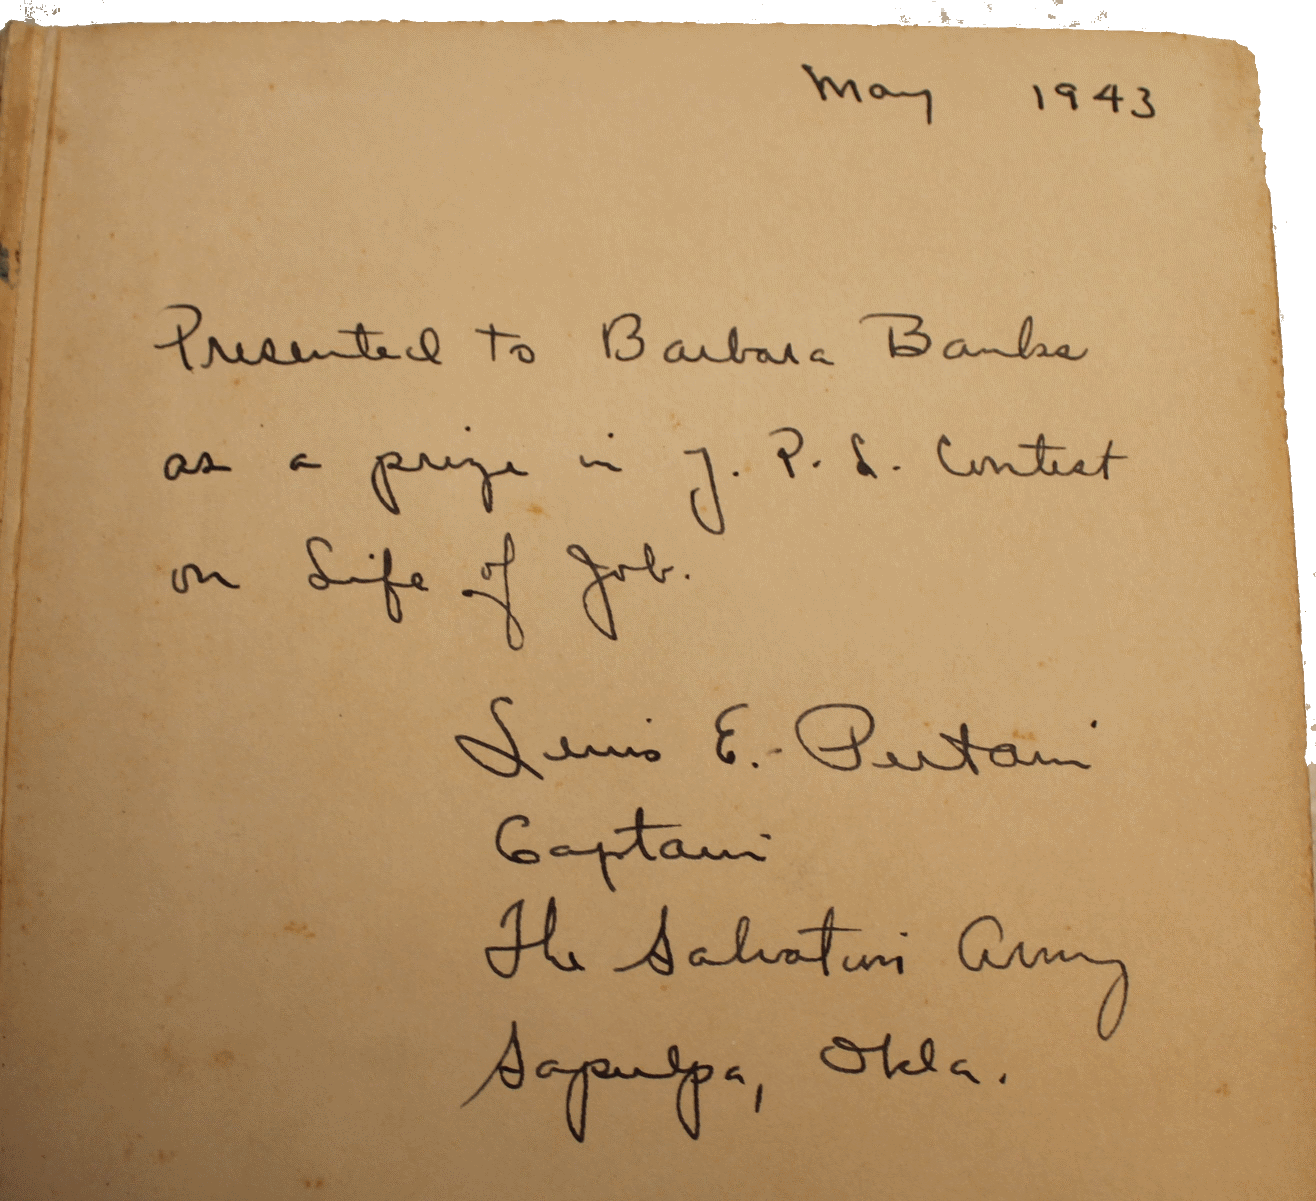 May 1943
Presented to Barbara Banks
as a prize in Y. P. L. Contest
on Life of Job.
E.
Captain
The Salvation Army
Sapulpa, Okla.